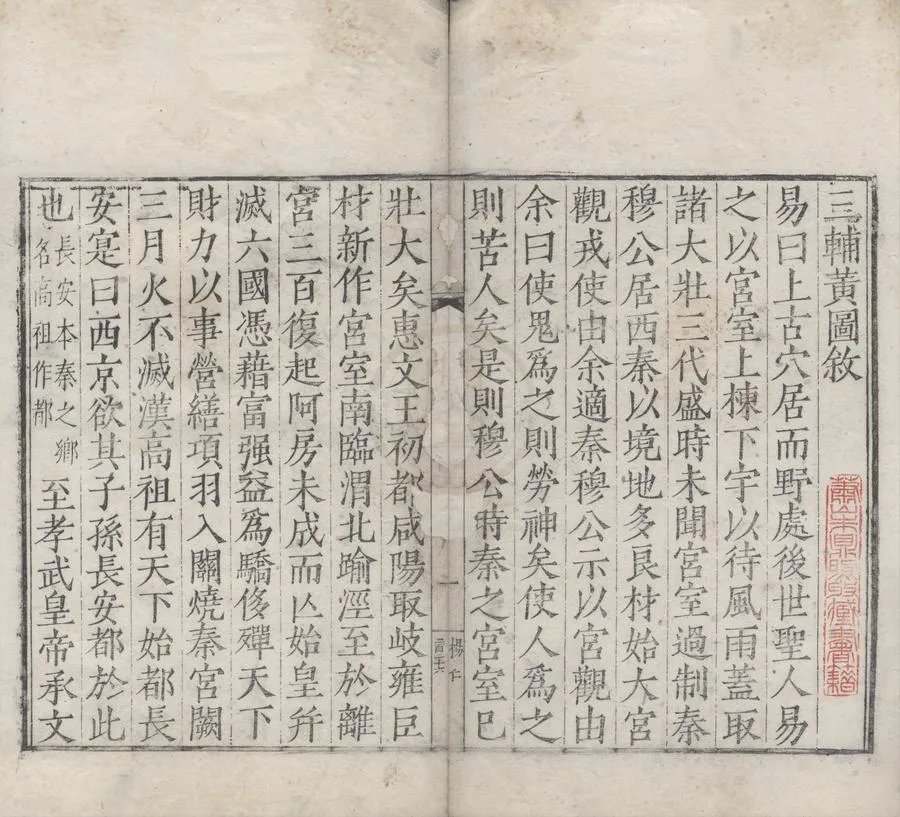 三輔黃圖敘
易曰上古穴居而野處後世聖人易
之以宮室上棟下宇以待風雨蓋取
諸大壯三代盛時未聞宮室過制秦
穆公居西秦以境地多良材始大宮
觀戎使由余適秦穆公示以宮觀由
余曰使鬼爲之則勞神矣使人爲之
則苦人矣是則穆公時秦之宮室已
一
壯大矣惠文王初都咸陽取岐雍巨
材新作宮室南臨渭北踰涇至於離
宮三百復起阿房未成而亾始皇幷
滅六國憑藉富强益爲驕侈殫天下
財力以事營繕項羽入關燒秦宮闕
三月火不滅漢高祖有天下始都長
安寔曰西京欲其子孫長安都於此
也長安本秦之鄉名高祖作都至孝武皇帝承文